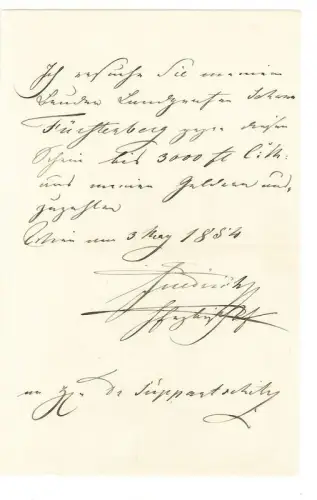 Ich ersuche Sie meinem
Bruder Landgrafen Johann
Fürstenberg gegen diesen
Schein bis 3000 fl C:M:
aus meinen Geldern aus,
zuzahlen
Wien am 3 May 1854
Friedrich
an H. Dr